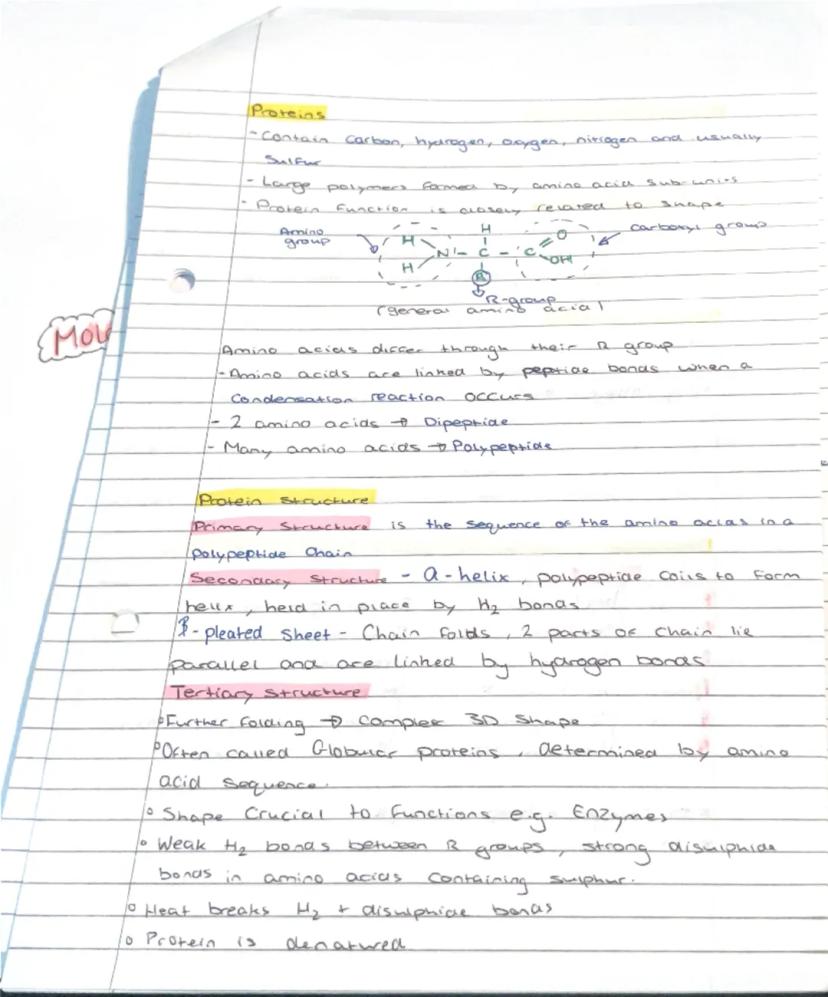 Proteins
- Contain carbon, hydrogen, oxygen, nitrogen and usually
Sulfur
- Large polymers formed by amino acid sub-units
- Protein function is closely related to shape
Amino group
H H N - C - C O OH
H
R
carboxyl group
R-group
(general amino acid)
Mole
Amino acids differ through their R group
- Amino acids are linked by peptide bonds when a
Condensation reaction occurs
- 2 amino acids → Dipeptide
- Many amino acids → Polypeptide
Protein Structure
Primary Structure is the sequence of the amino acids in a
polypeptide Chain
Secondary Structure - α-helix, polypeptide coils to form
helix, held in place by H2 bonds
β-pleated sheet - Chain folds, 2 parts of chain lie
parallel and are linked by hydrogen bonds
Tertiary Structure
Further folding → Complex 3D Shape
Often called Globular proteins, determined by amino
acid sequence.
Shape crucial to functions e.g. Enzymes
Weak H2 bonds between R groups, strong disulphide
bonds in amino acids containing sulphur.
Heat breaks H2 + disulphide bonds
Protein is denatured